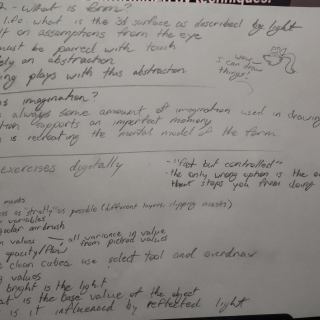 techniques.
2 - What is form?
l.fe what is the 3d surface as described by light
lt on assumptions from the eye
must be paired with touch
ely an abstraction
ing plays with this abstraction
why
I can draw
things!
is imagination?
always some amount of imagination used in drawing
tion supports an imperfect memory
n is recreating the mental model of the form
exercises digitally
- "fast but controlled"
- the only wrong option is the o
that stops you from doing
masks
as possible (different layers, clipping masks)
variables
gular airbrush
in values — all variance in value
opacity/flow from picked values
e clean cubes use select tool and overdraw
g values
bright is the light
at is the base value of the object
is it influenced by reflected light